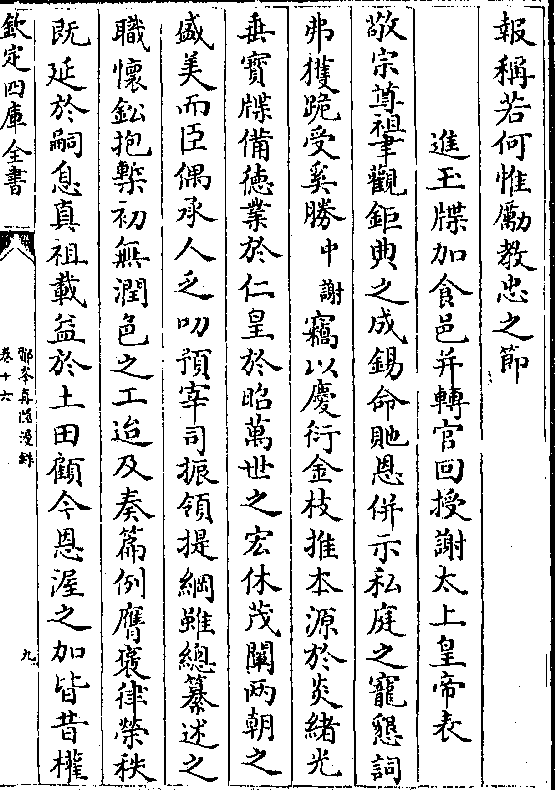 報稱若何惟勵教忠之節
進玉牒加食邑并轉官回授謝太上皇帝表
敬宗尊祖聿觀鉅典之成錫命貤恩併示私庭之寵懇詞
弗獲跪受奚勝中謝竊以慶衍金枝推本源於炎緒光
垂寶牒備德業於仁皇於昭萬世之宏休茂闡兩朝之
盛美而臣偶承人乏叨預宰司振領提綱雖總纂述之
職懷鈆抱槧初無潤色之工迨及奏篇例膺褒律榮秩
既延於嗣息真祖載益於土田顧今恩渥之加皆昔權
欽定四庫全書
鄮峯真隱漫錄
卷十六
九